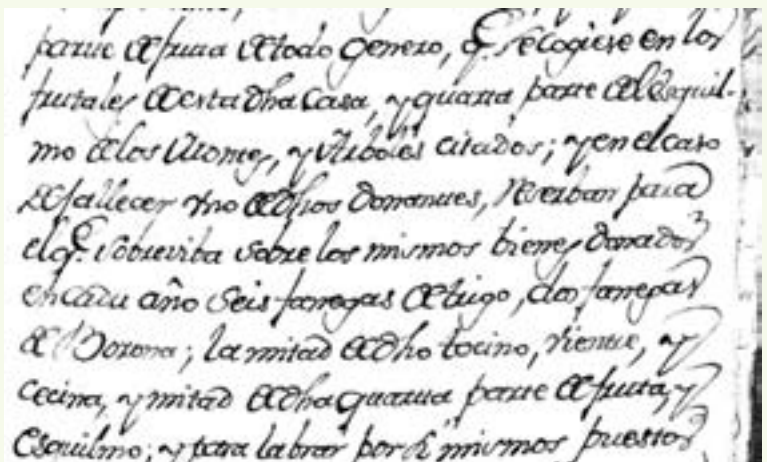 parte de fruta de todo genero, q.e se cogiese en los
frutales de esta dha Casa, y quarta parte del esquil-
mo de los Montes, y Arboles citados; y en el caso
de fallecer uno de dhos Donantes, reserban para
el q.e sobreviba sobre los mismos bienes donados
en cada año seis fanegas de trigo, dos fanegas
de Borona; la mitad de dho tocino, vientre, y
cecina, y mitad de dha quarta parte de fruta, y
esquilmo; y para labrar por si mismos puestos